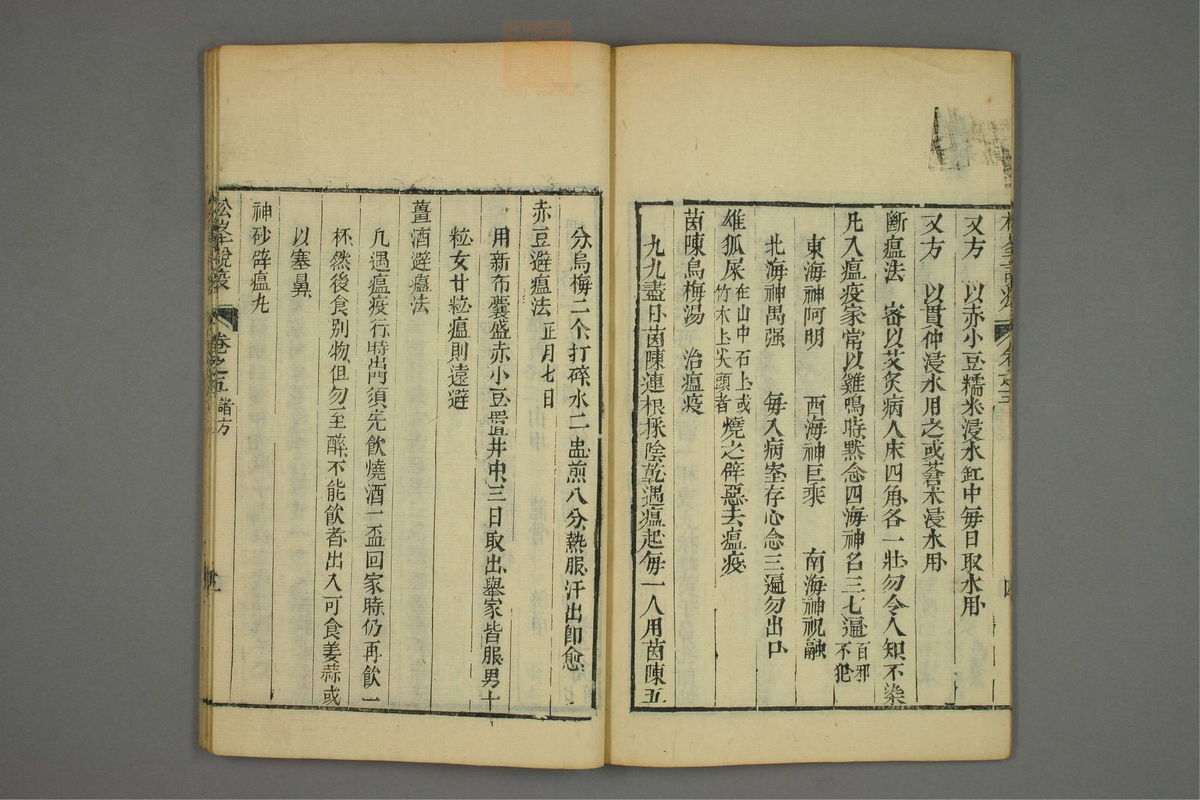 又方　以赤小豆糯米浸水缸中每日取水用
又方　以貫仲浸水用之或蒼朮浸水用
斷瘟法　密以艾灸病人床四角各一壯勿令人知不染
凡入瘟疫家常以雞鳴時默念四海神名三七遍百邪不犯
東海神阿明　西海神巨乘　南海神祝融
北海神禺强　每入病室存心念三遍勿出口
雄狐屎在山中石上或竹木上尖頭者燒之辟惡去瘟疫
茵陳烏梅湯　治瘟疫
九九盡日茵陳連根採陰乾遇瘟起每一人用茵陳五
分烏梅二个打碎水二盅煎八分熱服汗出即愈
赤豆避瘟法正月七日
用新布囊盛赤小豆置井中三日取出舉家皆服男十
粒女廿粒瘟則遠避
薑酒避瘟法
凡遇瘟疫行時出門須先飲燒酒一盃回家時仍再飲一
杯然後食别物但勿至醉不能飲者出入可食姜蒜或
以塞鼻
神砂辟瘟丸
松峯說疫　卷之五　諸方